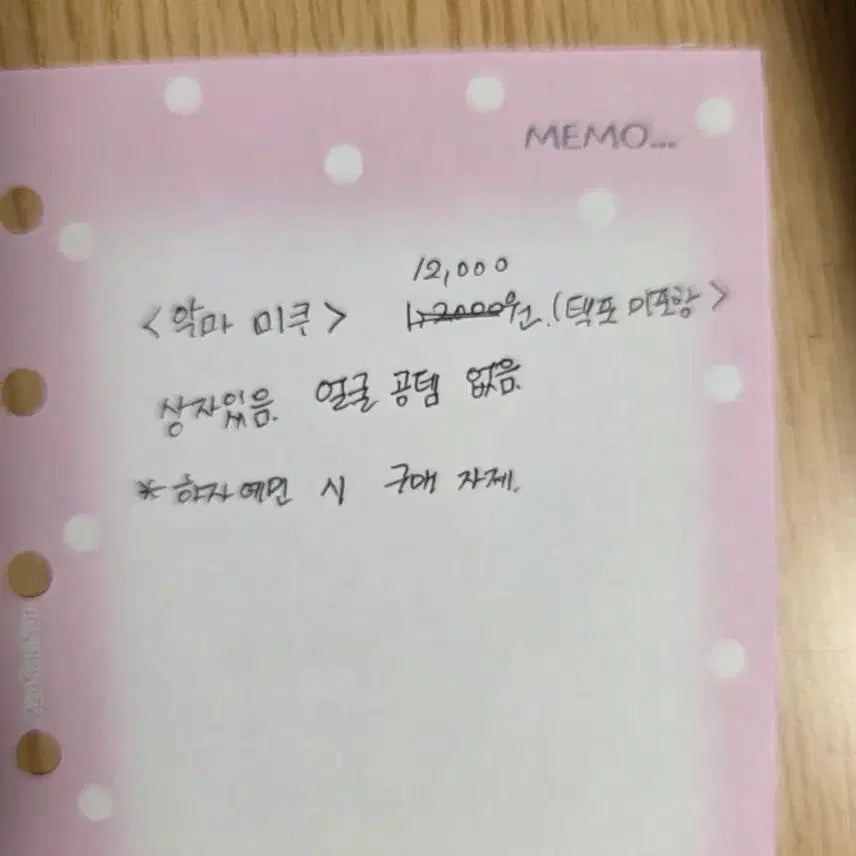 MEMO...
12,000
<악마 미쿠> 1,2000원.(택포 미포함>
상자있음. 얼굴 공템 없음.
* 하자예민 시 구매 자제.